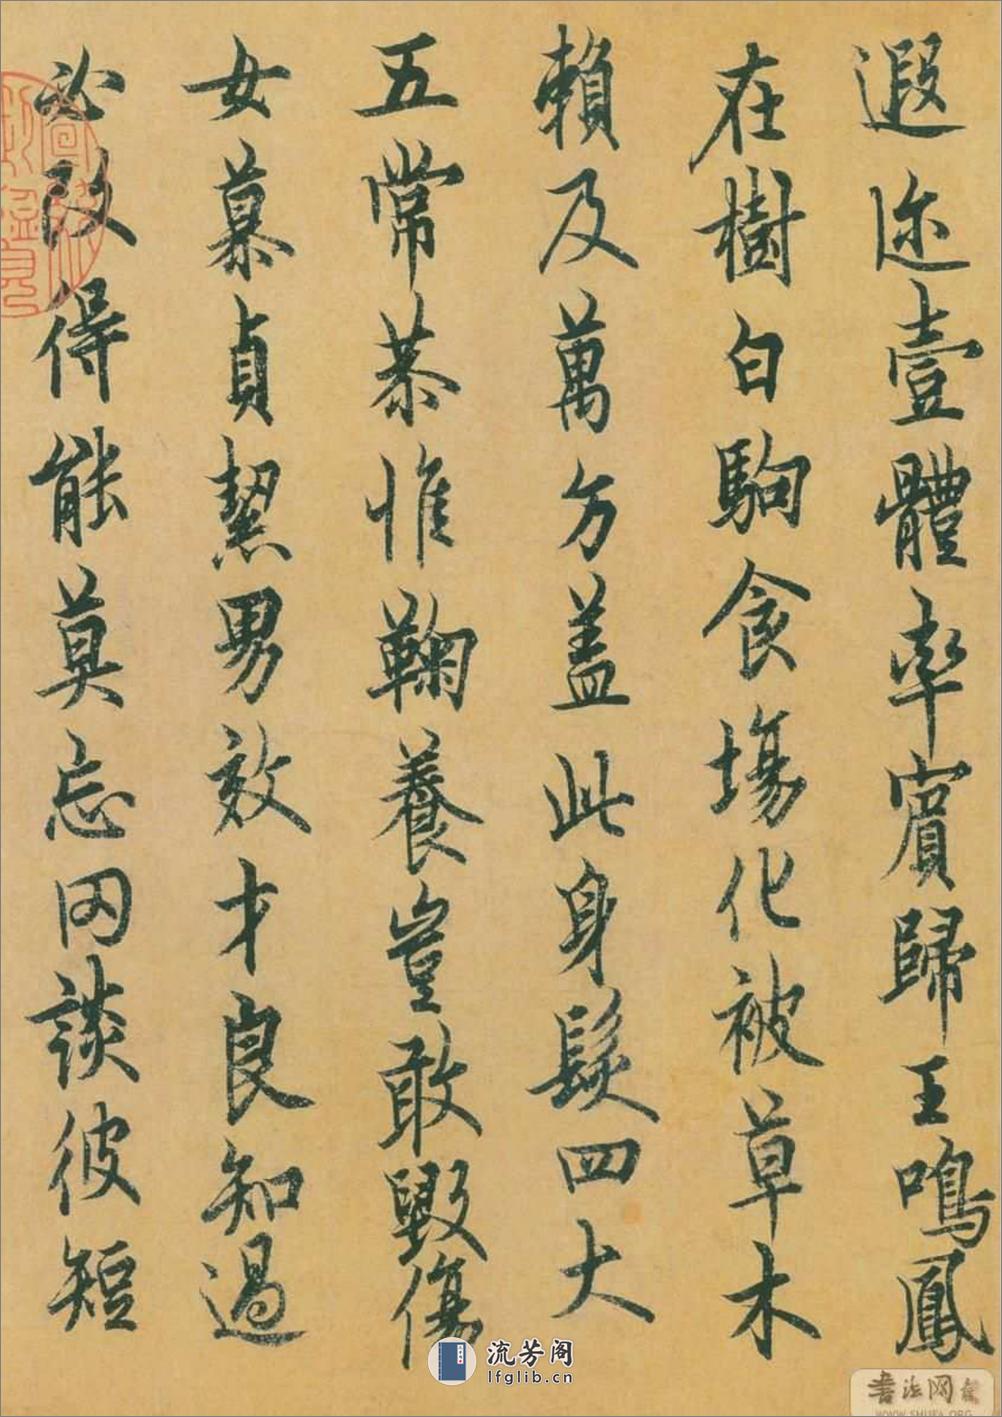 遐迩壹體率賓歸王鳴鳳
在樹白駒食塲化被草木
賴及萬方盖此身髮四大
五常恭惟鞠養豈敢毀傷
女慕貞絜男效才良知過
必改得能莫忘罔談彼短
流芳阁
lfglib.cn
WWW.SHUFA.ORG